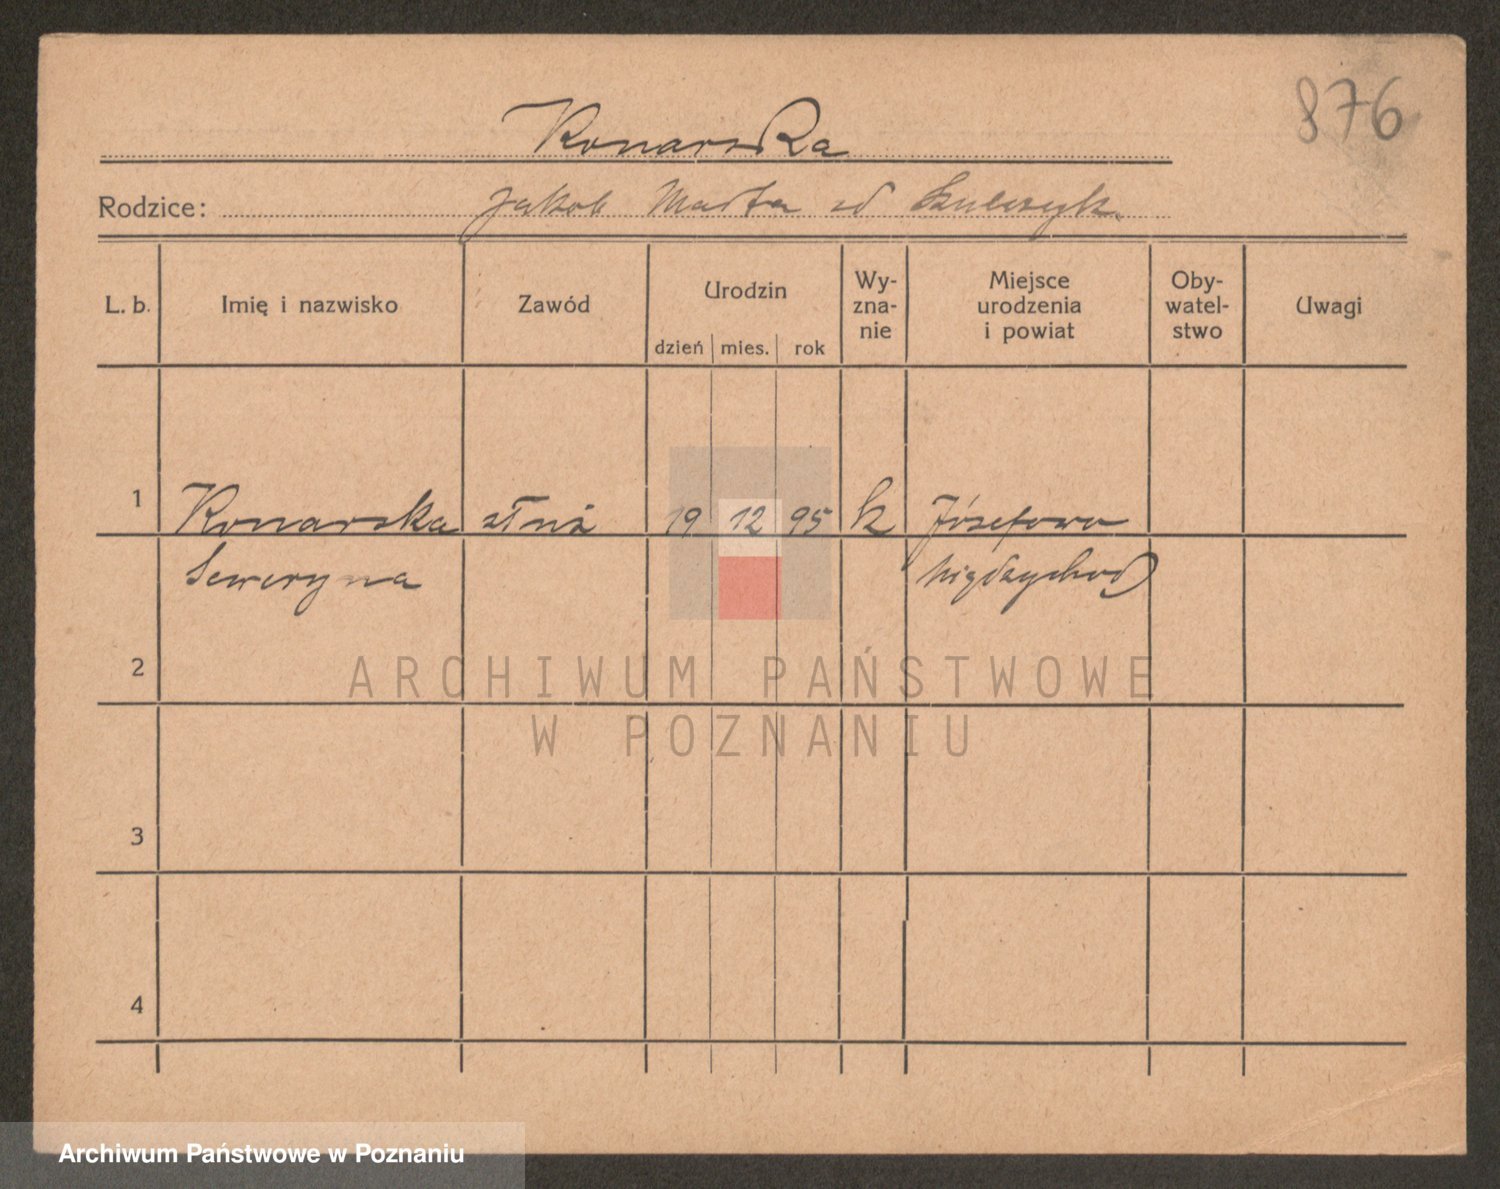 876
Konarska
Rodzice: Jakob Marta zd Szulczyk.
L. b. Imię i nazwisko Zawód Urodzin dzień mies. rok Wy-zna-nie Miejsce urodzenia i powiat Oby-watel-stwo Uwagi
1 Konarska służ 19 12 95 k Józefowo
Seweryna Międzychod
2
3
4
ARCHIWUM PAŃSTWOWE
W POZNANIU
Archiwum Państwowe w Poznaniu